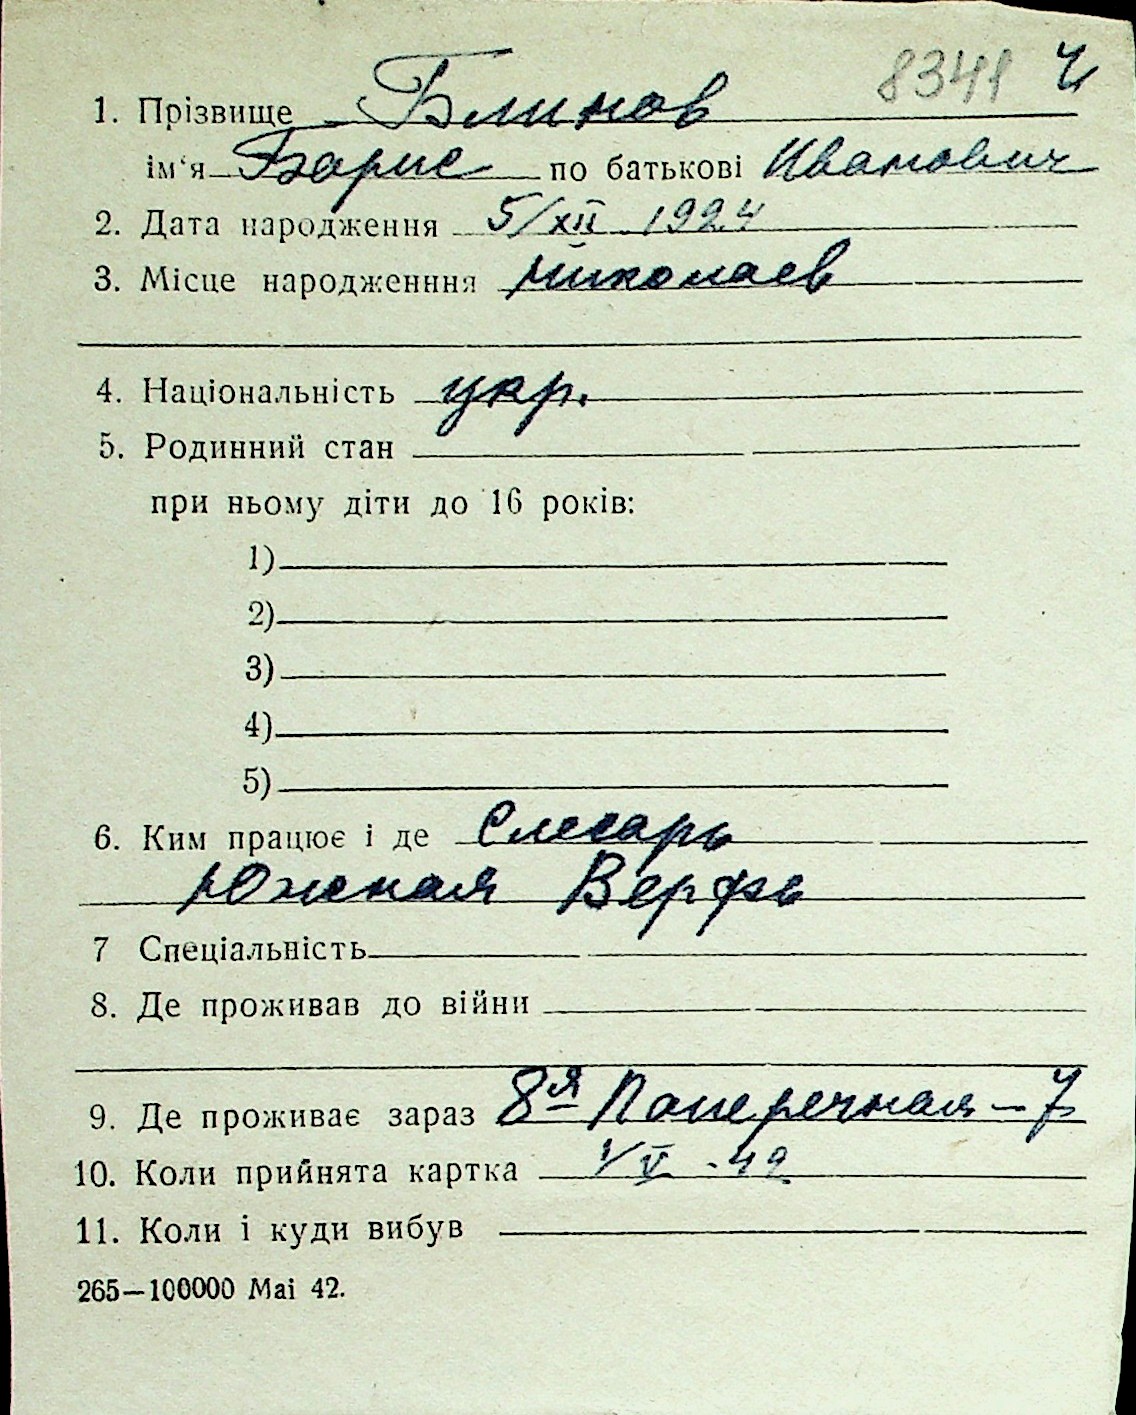 8341 Ч
1. Прізвище Блинов
ім'я Борис по батькові Иванович
2. Дата народження 5/XII 1924
3. Місце народженння Николаев
4. Національність укр.
5. Родинний стан
при ньому діти до 16 років:
1)
2)
3)
4)
5)
6. Ким працює і де Слесарь
Южная Верфь
7 Спеціальність
8. Де проживав до війни
9. Де проживає зараз 8я Поперечная – 7
10. Коли прийнята картка 1/V - 42
11. Коли і куди вибув
265—100000 Mai 42.